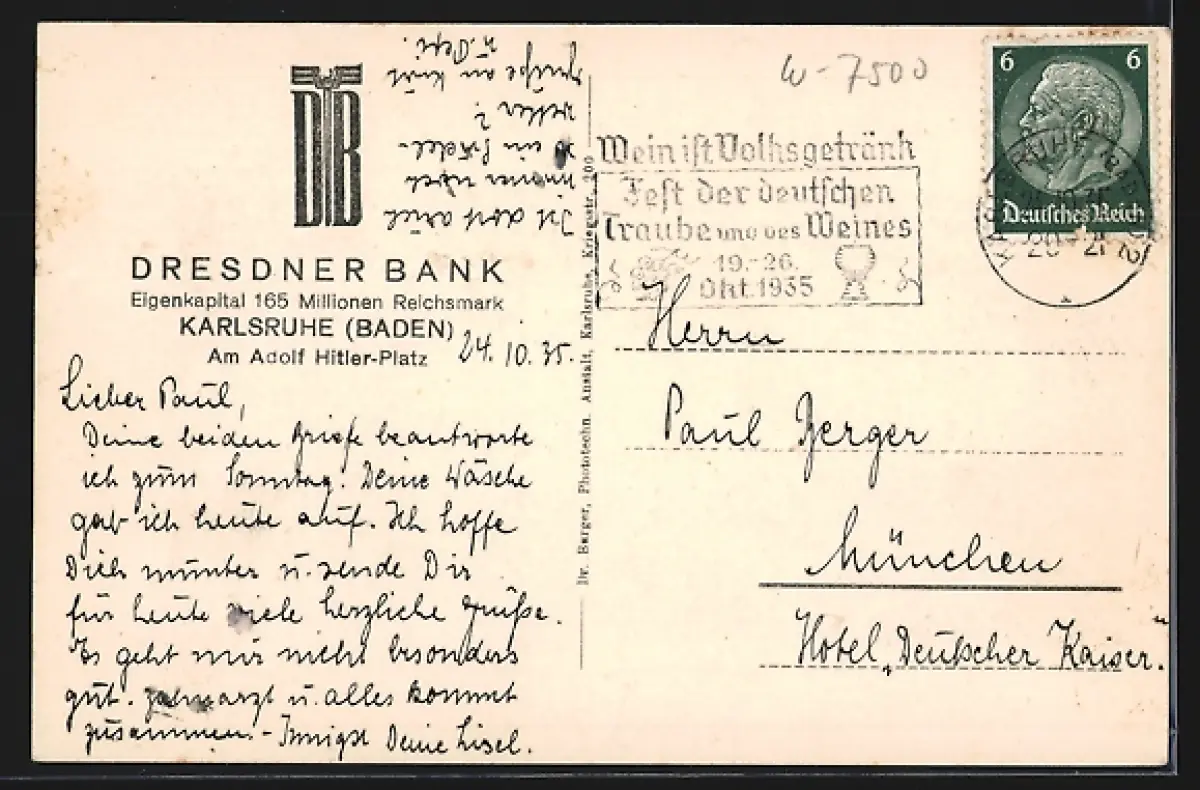 DB
DRESDNER BANK
Eigenkapital 165 Millionen Reichsmark
KARLSRUHE (BADEN)
Am Adolf Hitler-Platz
24.10.35.
Lieber Paul,
Deine beiden Briefe beantworte
ich zum Sonntag! Deine Wäsche
gab ich heute auf. Ich hoffe
Dich munter u. sende Dir
für heute viele herzliche Grüße.
Es geht mir nicht besonders
gut. Zahnarzt u. alles kommt
zusammen. - Innigst Deine Lisel.
Ist dort auch
immer noch
so ein
wetter?
Grüße an Kurt
u.
Dr. Barger, Phototechn. Anstalt, Karlsruhe, Kriegsstr. 200
W-7500
Wein ist Volksgetränk
Fest der deutschen
Traube und des Weines
19.-26.
Okt. 1935
6 6
Deutsches Reich
KARLSRUHE
Herrn
Paul Berger
München
Hotel „Deutscher Kaiser."